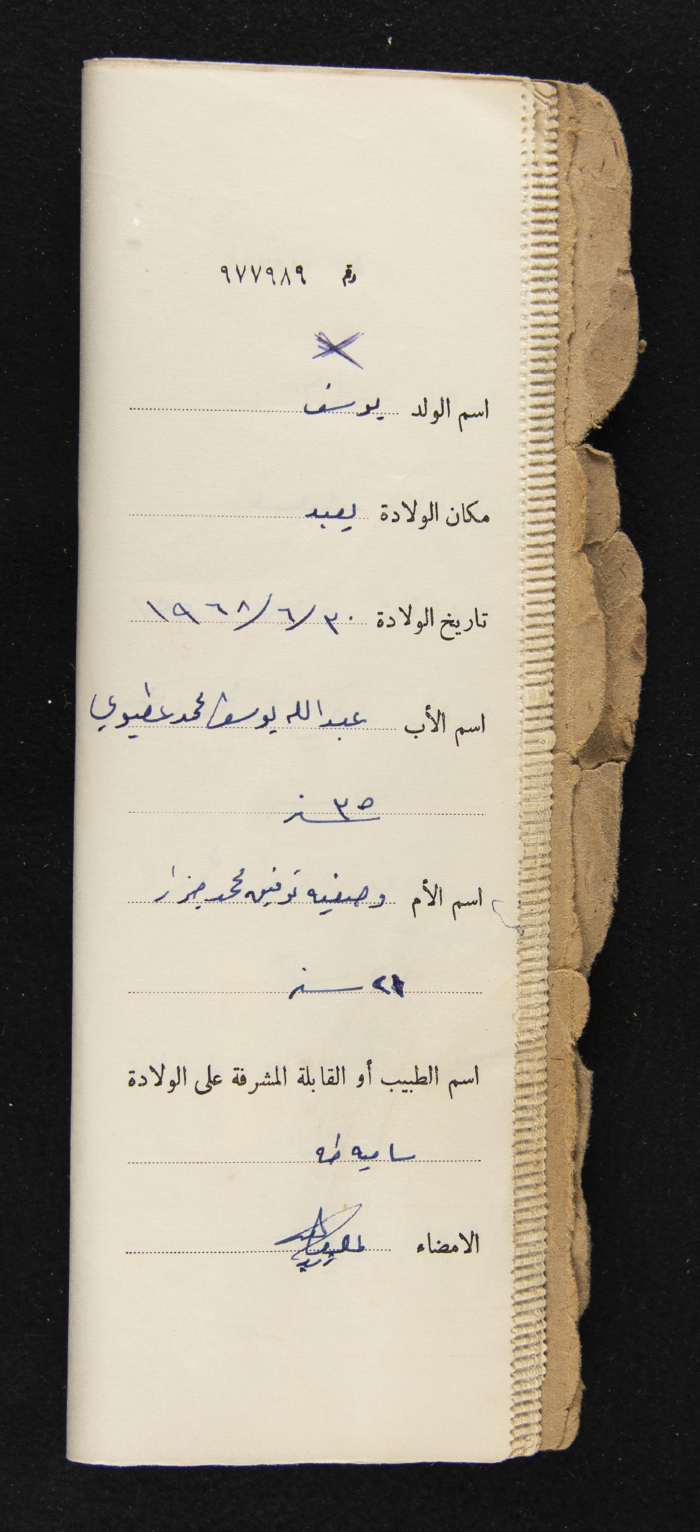 رقم ٩٧٧٩٨٩
اسم الولد يوسف
مكان الولادة يعبد
تاريخ الولادة ٣٠/٦/١٩٦٨
اسم الأب عبد الله يوسف محمد عطيوي
٣٥ سنه
اسم الأم وصفيه توفيق محمد جرار
سنه
اسم الطبيب أو القابلة المشرفة على الولادة
ساميه طه
الامضاء